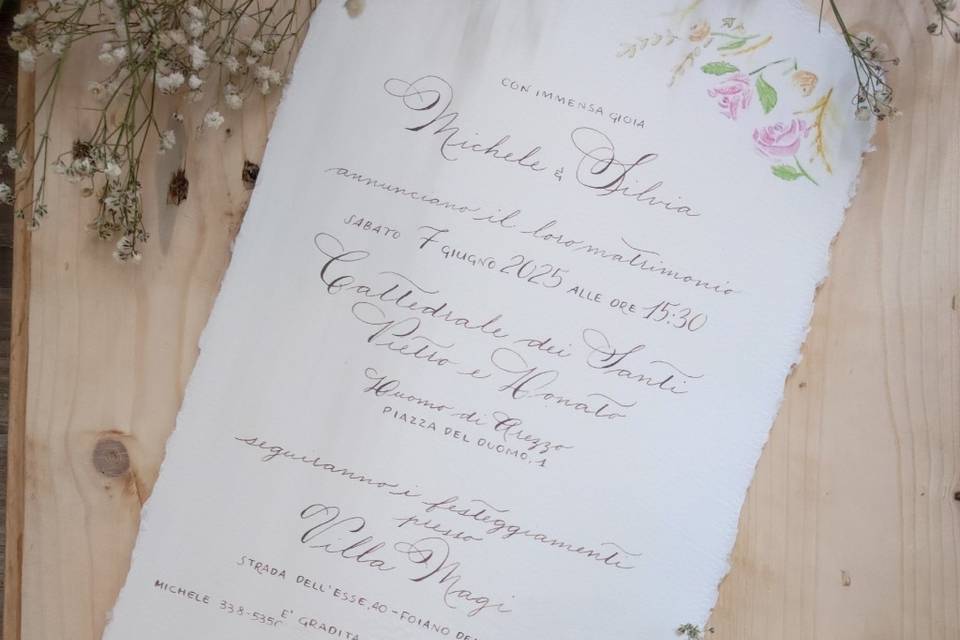 CON IMMENSA GIOIA
Michele & Silvia
annunciano il loro matrimonio
SABATO 7 GIUGNO 2025 ALLE ORE 15:30
Cattedrale dei Santi
Pietro e Donato
Duomo di Arezzo
PIAZZA DEL DUOMO, 1
seguiranno i festeggiamenti
presso
Villa Magi
STRADA DELL'ESSE, 40 - FOIANO DE
È GRADITA
MICHELE 338-535